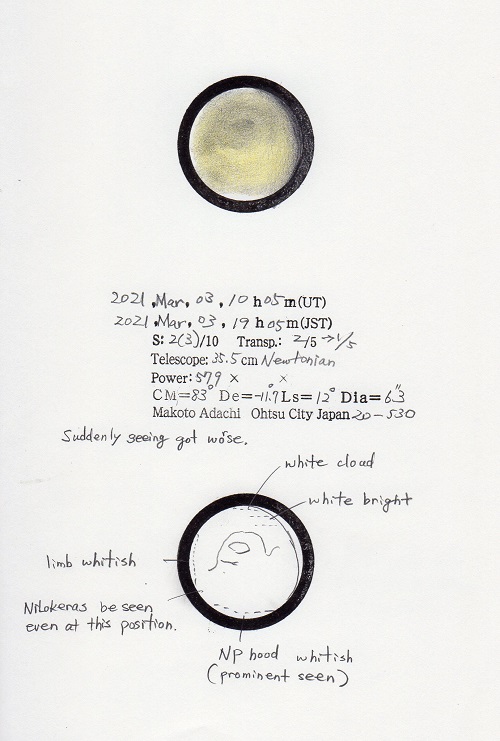 2021, Mar, 03, 10 h 05 m (UT)
2021, Mar, 03, 19 h 05 m (JST)
S: 2(3)/10 Transp.: 2/5 → 1/5
Telescope: 35.5 cm Newtonian
Power: 579 × ×
CM=83° De=-11.7° Ls=12° Dia=6.3"
Makoto Adachi Ohtsu City Japan 20-530
Suddenly seeing got worse.
white cloud
white bright
limb whitish
Nilokeras be seen
even at this position.
NP hood whitish
(prominent seen)